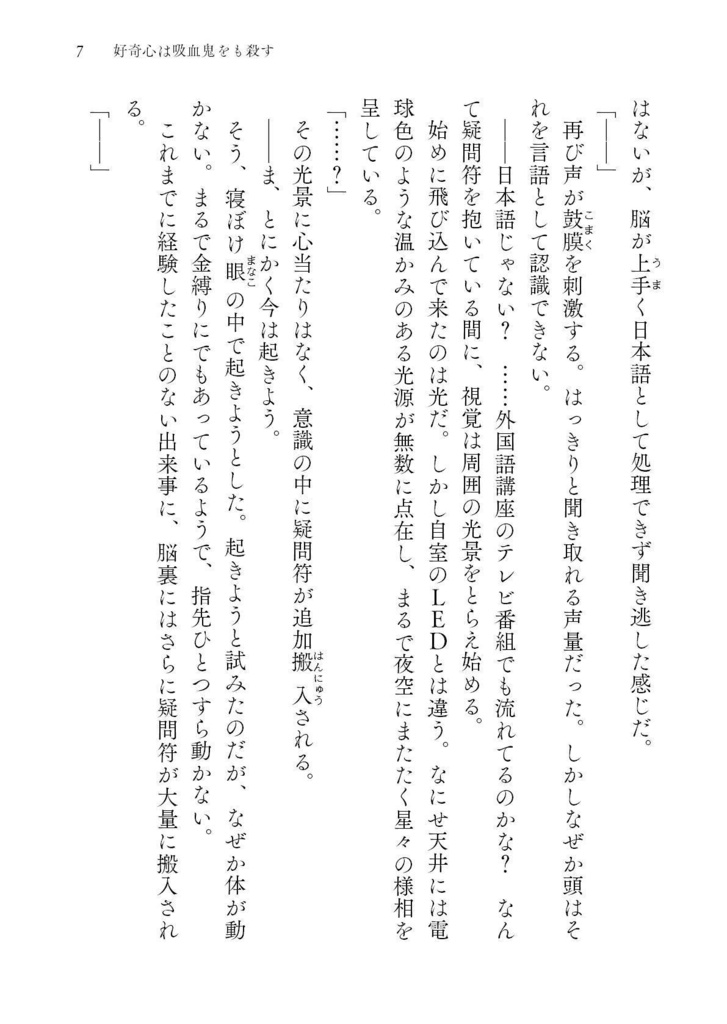 7　好奇心は吸血鬼をも殺す
はないが、脳が上手く日本語として処理できず聞き逃した感じだ。
「――」
　再び声が鼓膜を刺激する。はっきりと聞き取れる声量だった。しかしなぜか頭はそ
れを言語として認識できない。
　――日本語じゃない？　……外国語講座のテレビ番組でも流れてるのかな？　なん
て疑問符を抱いている間に、視覚は周囲の光景をとらえ始める。
　始めに飛び込んで来たのは光だ。しかし自室のＬＥＤとは違う。なにせ天井には電
球色のような温かみのある光源が無数に点在し、まるで夜空にまたたく星々の様相を
呈している。
「……？」
　その光景に心当たりはなく、意識の中に疑問符が追加搬入される。
　――ま、とにかく今は起きよう。
　そう、寝ぼけ眼の中で起きようとした。起きようと試みたのだが、なぜか体が動
かない。まるで金縛りにでもあっているようで、指先ひとつすら動かない。
　これまでに経験したことのない出来事に、脳裏にはさらに疑問符が大量に搬入され
る。
「――」